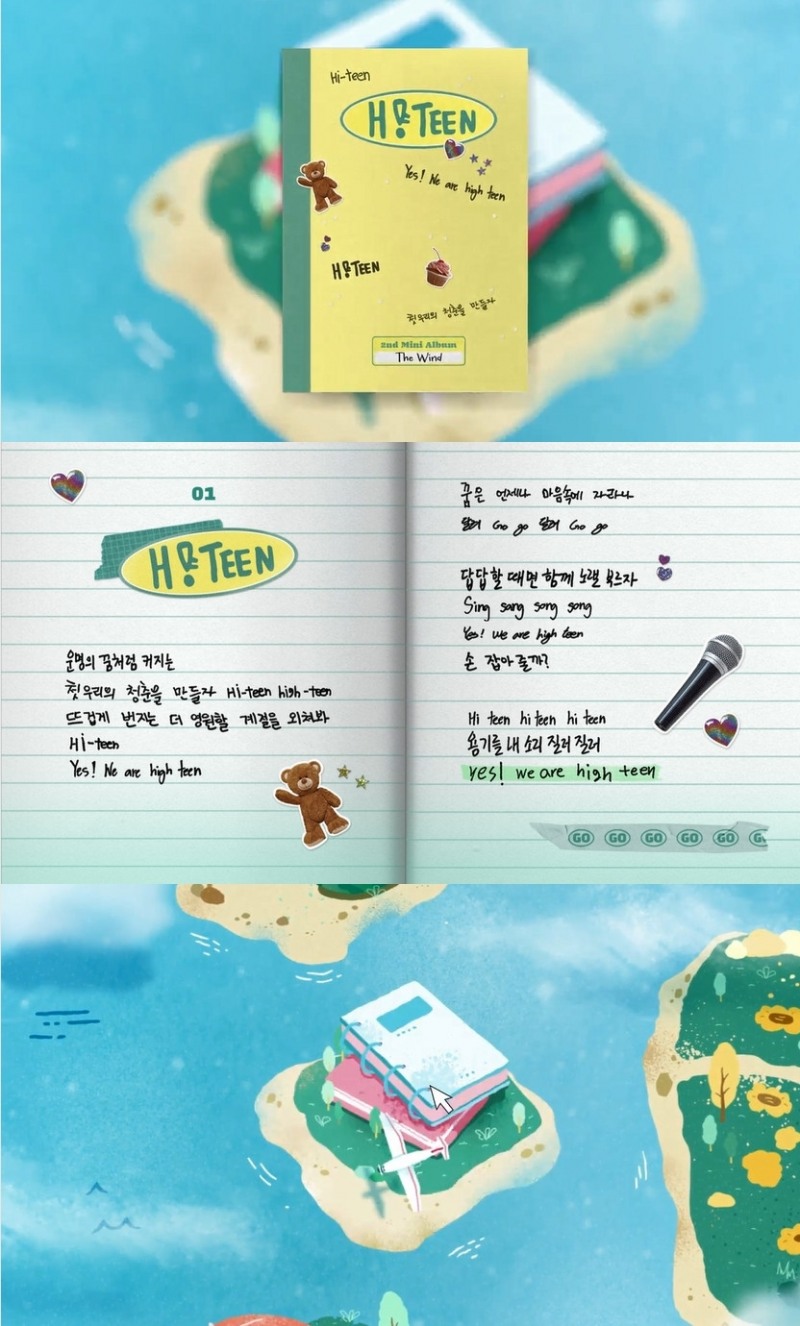 Hi-teen
HI TEEN
Yes! We are high teen
HI TEEN
첫 우리의 청춘을 만들자
2nd Mini Album
The Wind
01
HI TEEN
운명의 꿈처럼 커지는
첫 우리의 청춘을 만들자 Hi-teen high-teen
뜨겁게 번지는 더 영원할 계절을 외쳐봐
Hi-teen
Yes! We are high teen
꿈은 언제나 마음속에 자라나
달려 Go go 달려 Go go
답답할 때면 함께 노랠 부르자
Sing sang song song
Yes! we are high teen
손 잡아 줄까?
Hi teen hi teen hi teen
용기를 내 소리 질러 질러
yes! we are high teen
GO GO GO GO GO G